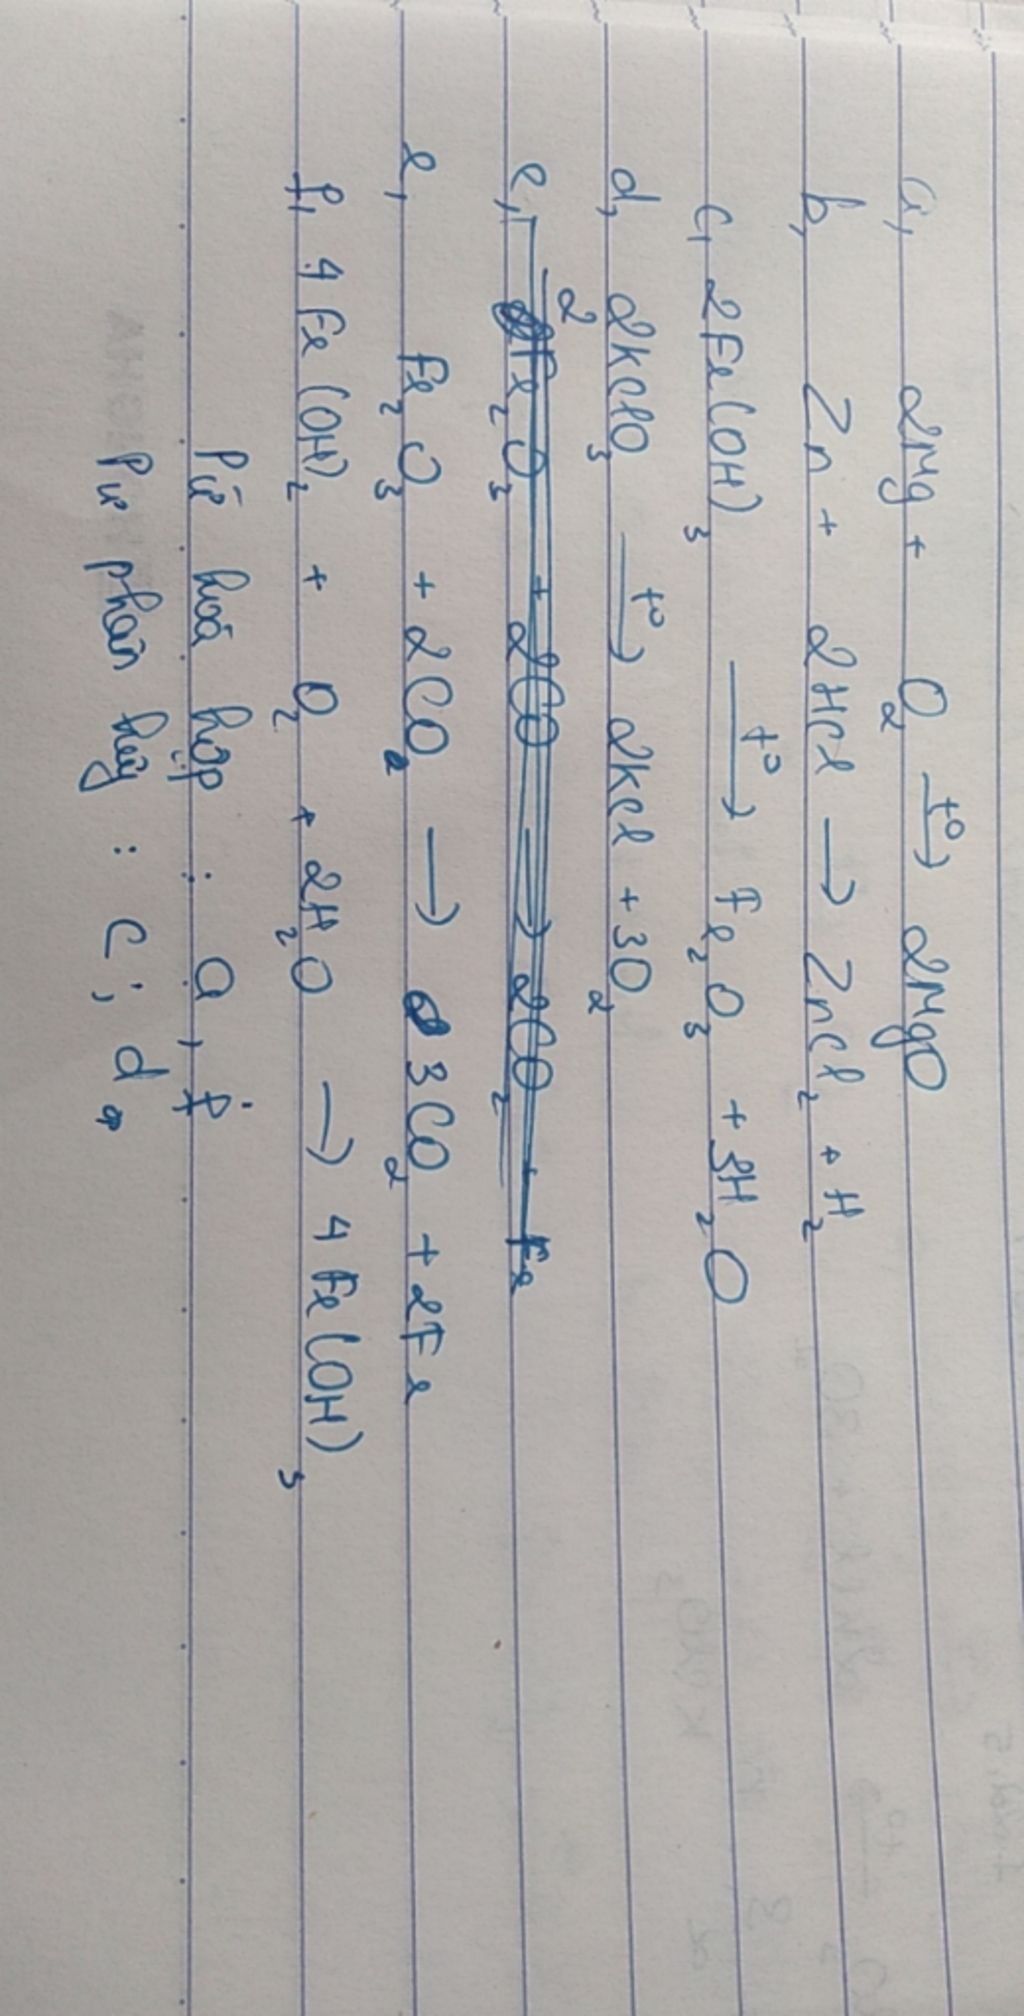 a, 2Mg + O2 t°→ 2MgO
b, Zn + 2HCl → ZnCl2 + H2
c, 2Fe(OH)3 t°→ Fe2O3 + 3H2O
d, 2KClO3 t°→ 2KCl + 3O2
e, 2Fe2O3 + 2CO → 2CO2 + Fe
e, Fe2O3 + 2CO2 → 3CO2 + 2Fe
f, 4Fe(OH)2 + O2 + 2H2O → 4Fe(OH)3
Pứ hoá hợp : a, f
Pư phân hủy : c; d